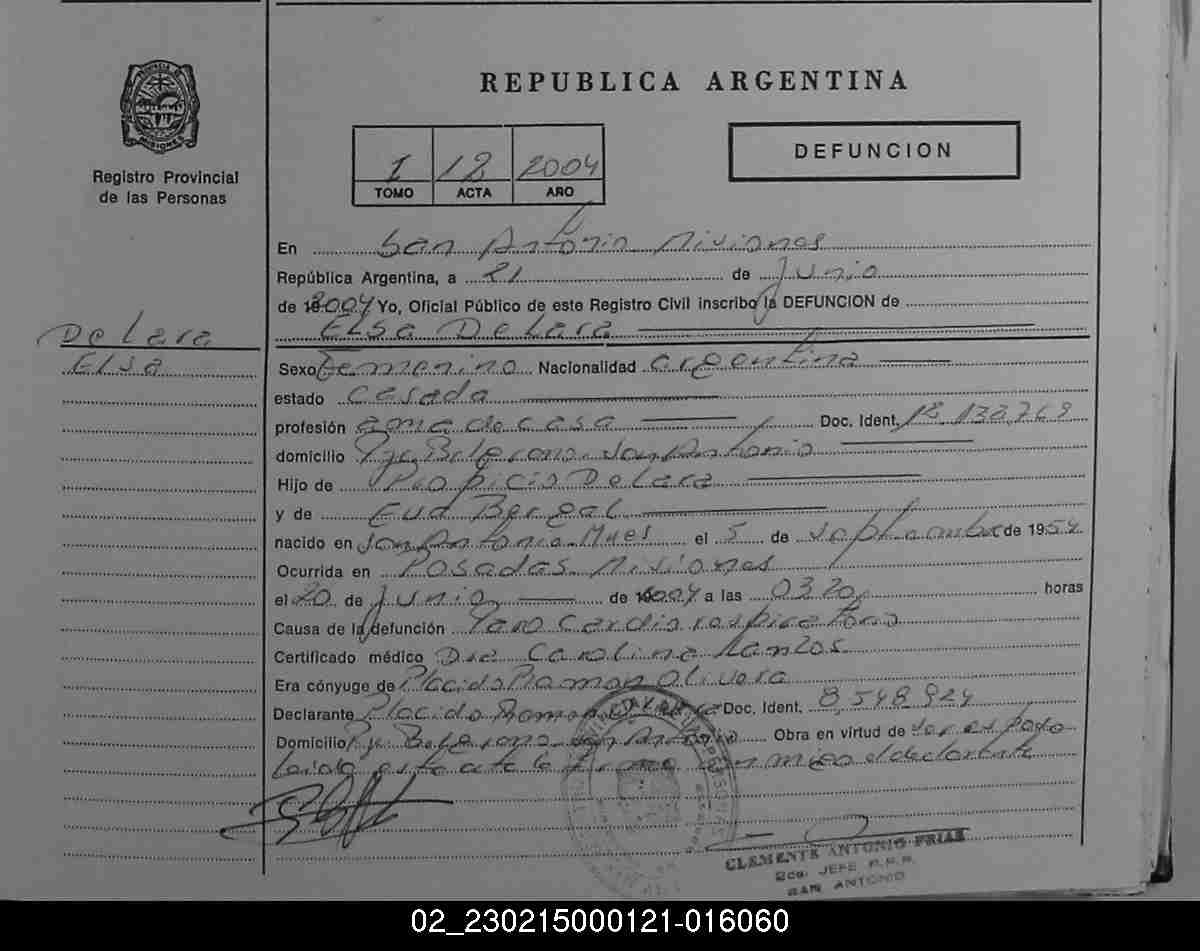 PROVINCIA DE
MISIONES
Registro Provincial
de las Personas
REPUBLICA ARGENTINA
1 12 2004
TOMO ACTA AÑO
DEFUNCION
En San Antonio Misiones
República Argentina, a 21 de Junio
de 2004 Yo, Oficial Público de este Registro Civil inscribo la DEFUNCION de
ELSA De Lara
De Lara
ELSA
Sexo Femenino Nacionalidad argentina
estado casada
profesión ama de casa Doc. Ident. 12.132.769
domicilio Pje. Belgrano San Antonio
Hijo de Propicio De Lara
y de Eva Bergal
nacido en San Antonio Mnes el 5 de septiembre de 1954
Ocurrida en Posadas Misiones
el 20 de Junio de 2004 a las 0320 horas
Causa de la defunción Paro Cardio respiratorio
Certificado médico Dra Carolina Santos
Era cónyuge de Placido Ramon Olivera
Declarante Placido Ramon Doc. Ident. 8.548.924
Domicilio Pje. Belgrano San Antonio Obra en virtud de ser esposo
leida este acta la firma conmigo el declarante
CLEMENTE ANTONIO FRIAS
2do. JEFE R.P.P.
SAN ANTONIO
02_230215000121-016060